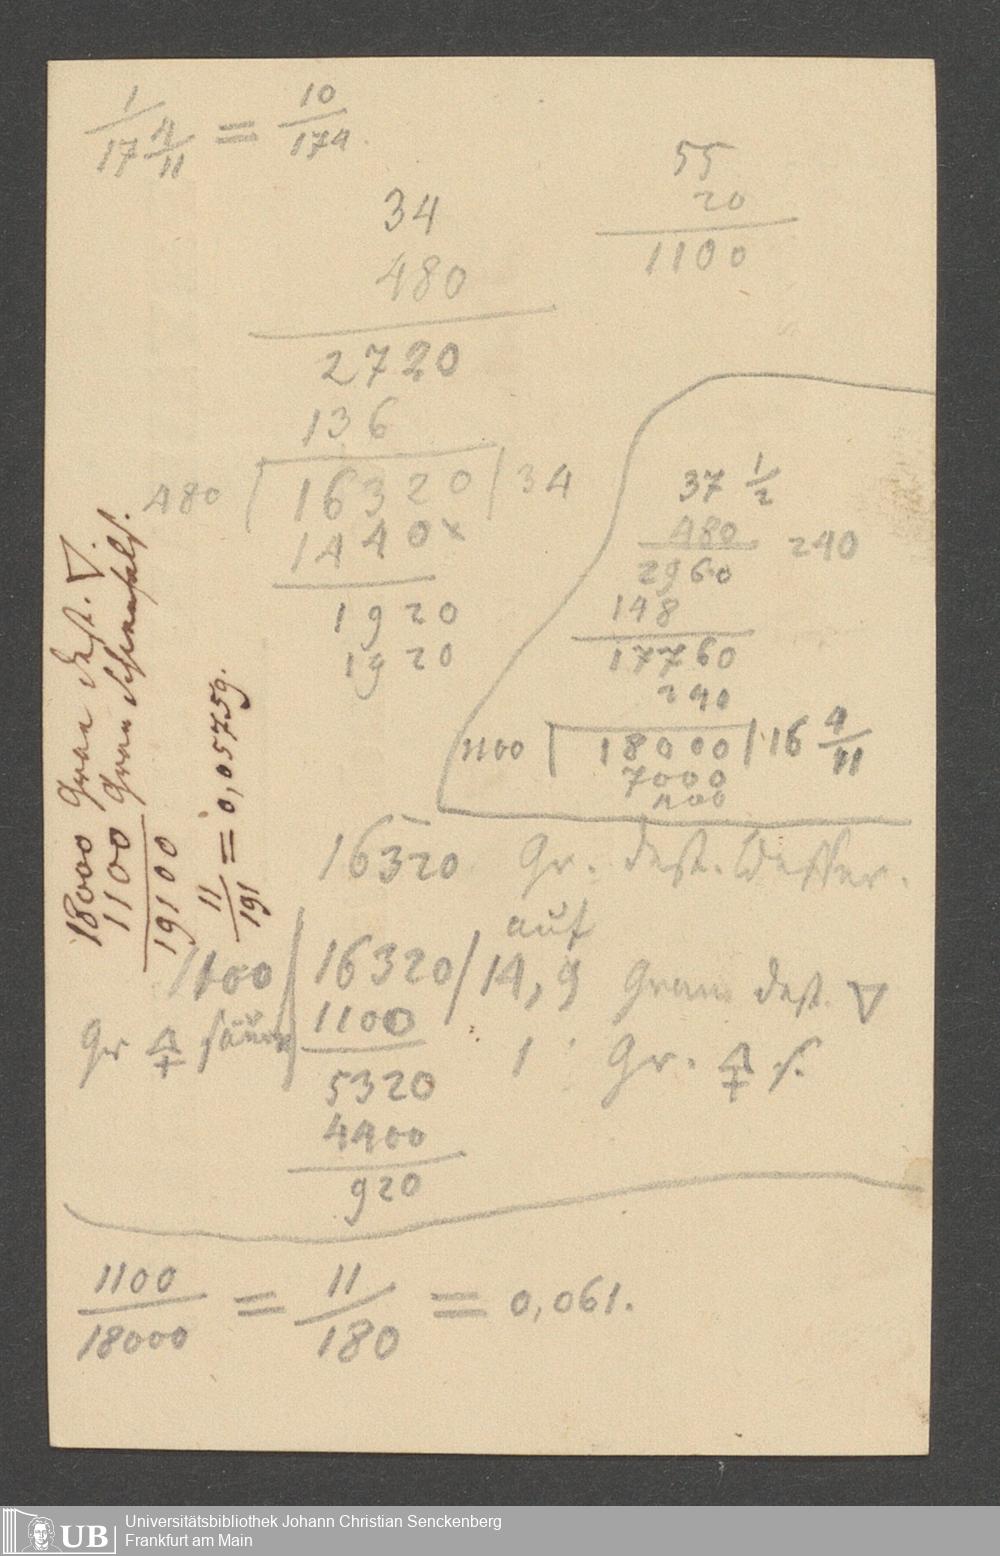 1/17 4/11 = 10/174.
55
20
1100
34
480
2720
136
480 | 16320 | 34
1440x
1920
1920
37 1/2
480 240
2960
148
17760
240
1100 | 18000 | 16 4/11
7000
400
18000 Gran dest. ▽.
1100 Gran
19100
11/191 = 0,05759.
16320 Gr. dest. Wasser.
auf
1100 | 16320 / 14,9 Gran dest. ▽
Gr 🜍 säure 1100 1 Gr. 🜍 s.
5320
4400
920
1100/18000 = 11/180 = 0,061.
UB
Universitätsbibliothek Johann Christian Senckenberg
Frankfurt am Main